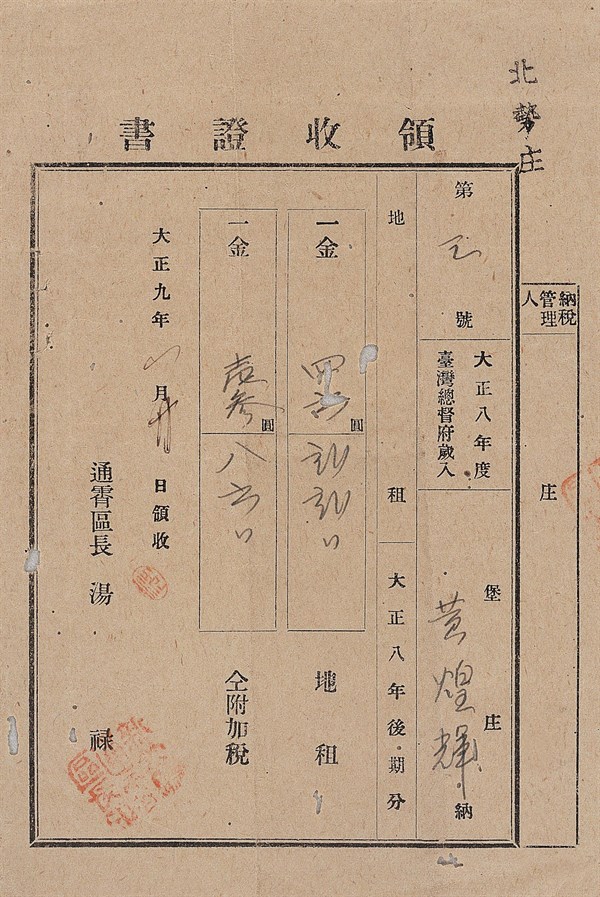 北勢庄
領收證書
納稅管理人
庄
第 号 號
大正八年度
臺灣總督府歲入
堡
庄
黃煌輝 納
地租
大正八年後期分
一金 圓
地租
一金 圓
仝附加稅
大正九年 月 日領收
通霄區長 湯 祿